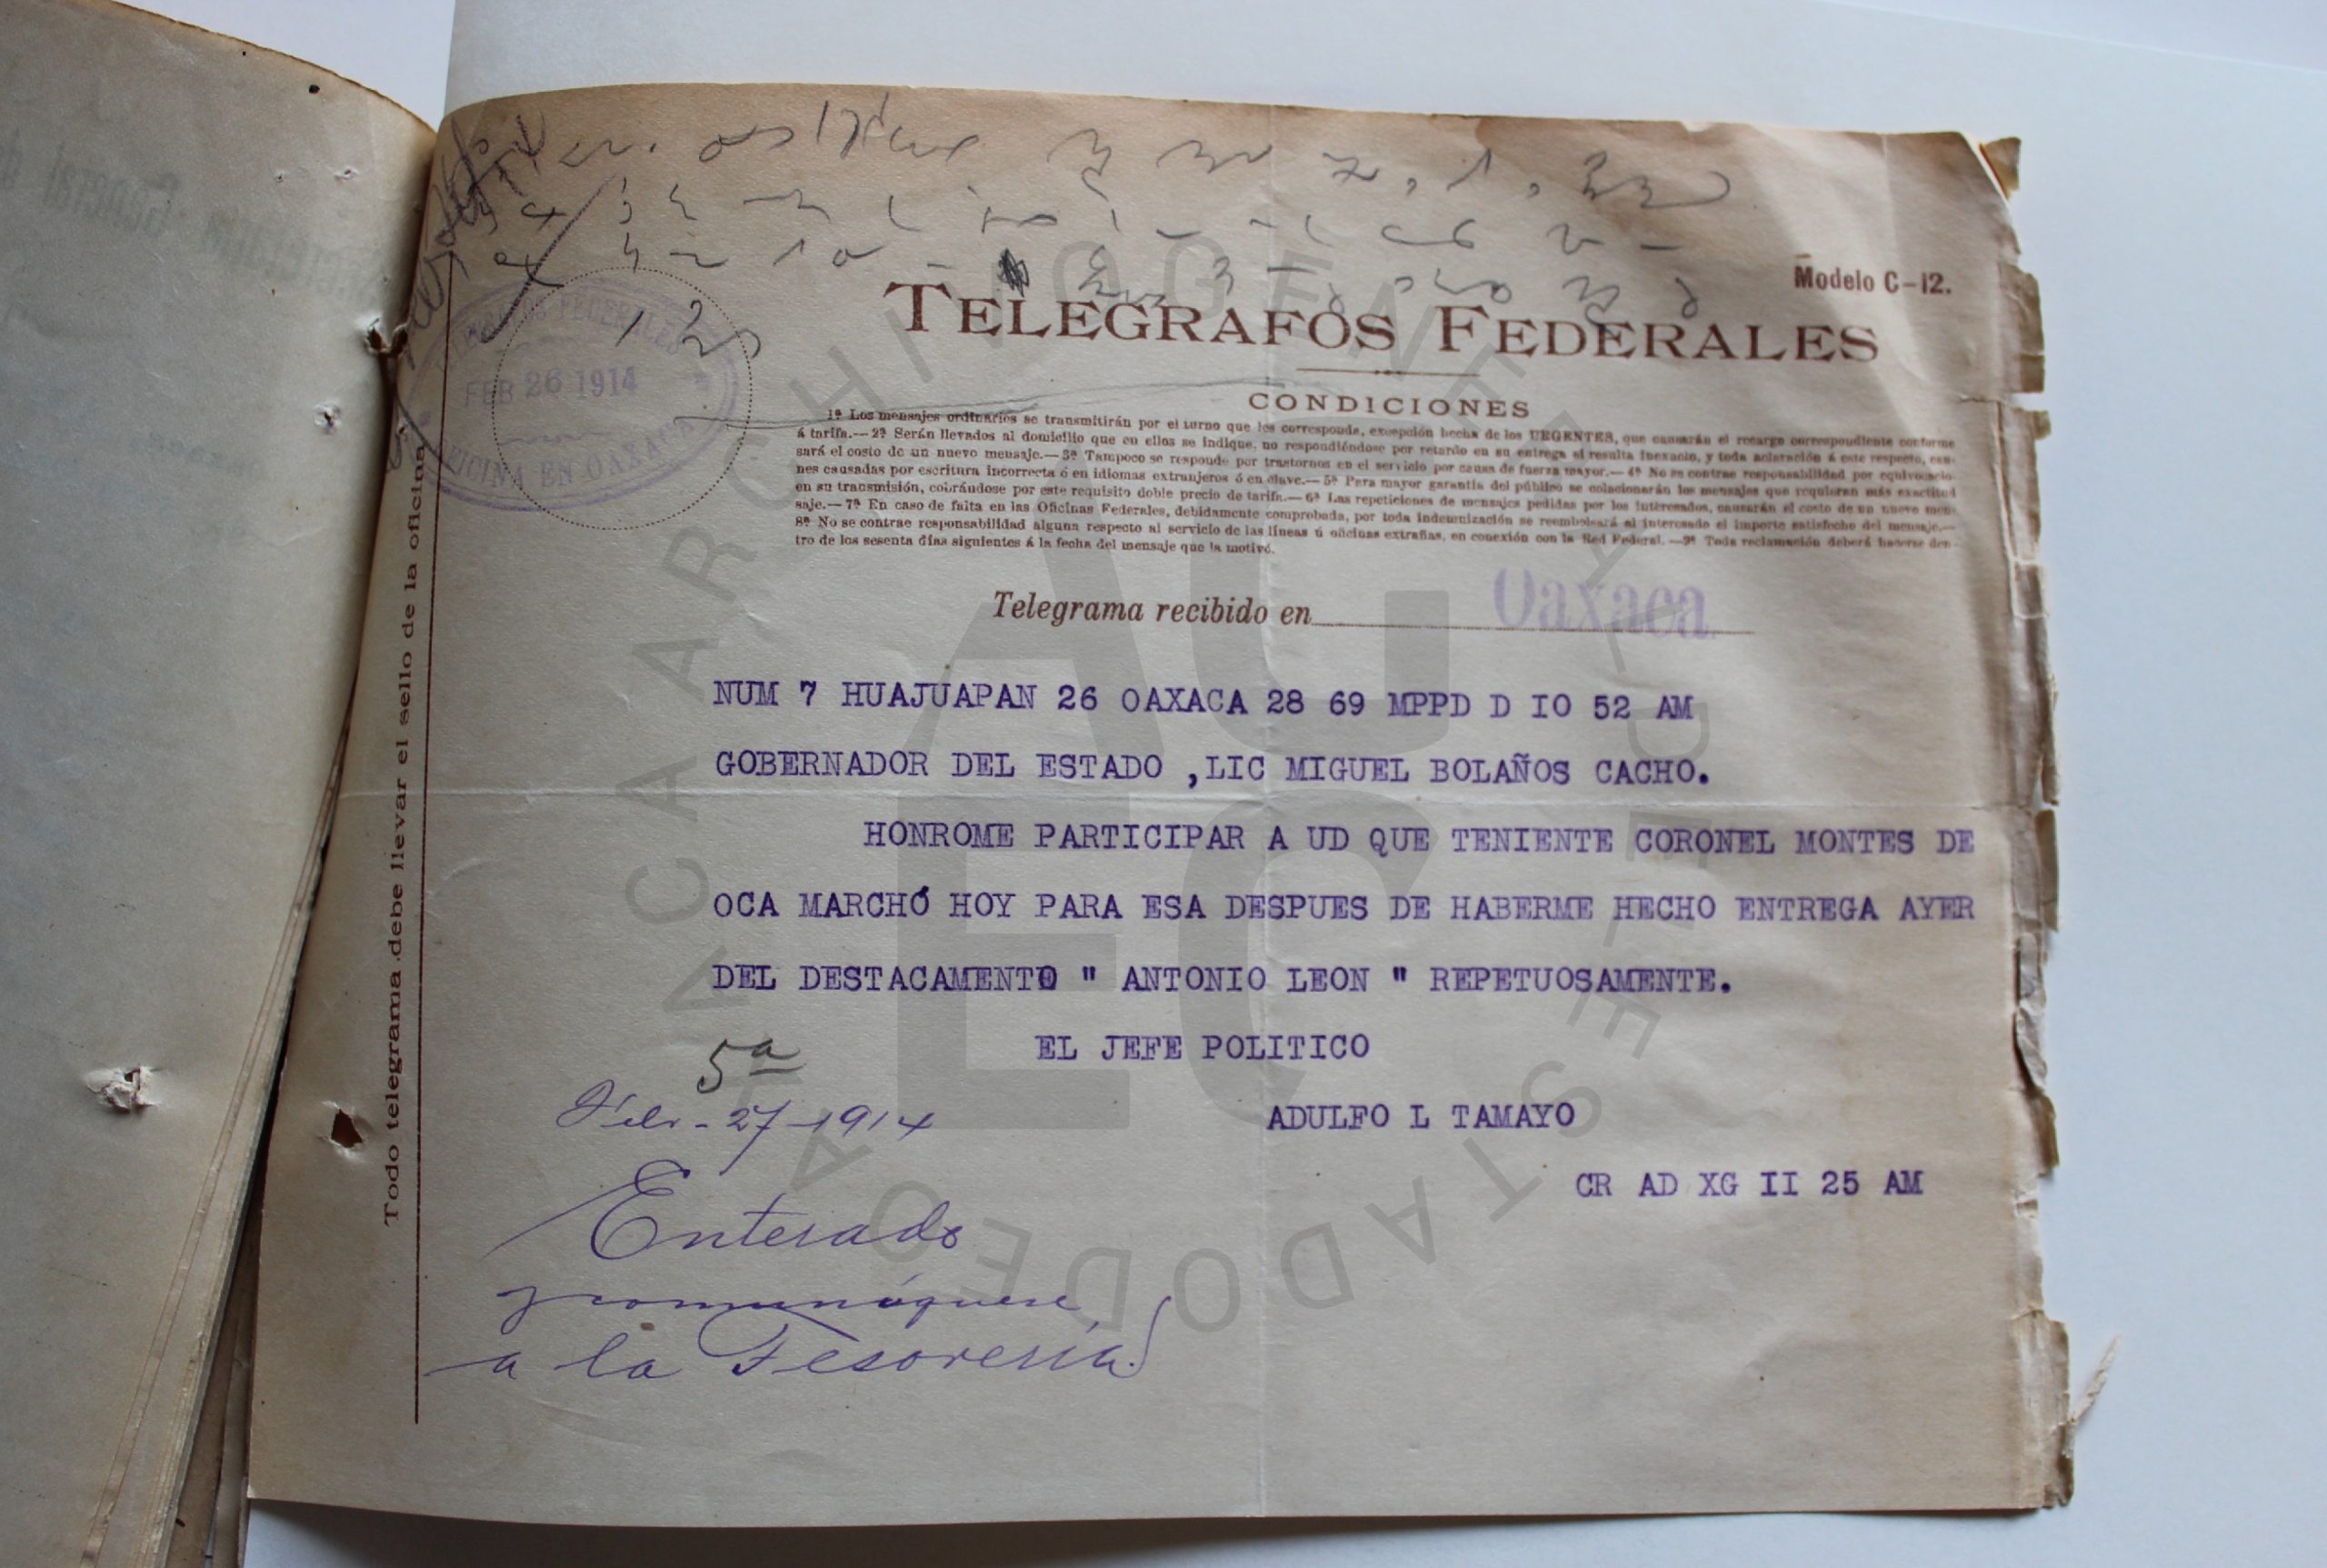 Modelo C-12.
TELEGRAFOS FEDERALES
CONDICIONES
1ª Los mensajes ordinarios se transmitirán por el turno que les corresponde, excepción hecha de los URGENTES, que causarán el recargo correspondiente conforme
á tarifa.—2ª Serán llevados al domicilio que en ellos se indique, no respondiéndose por retardo en su entrega si resulta inexacto, y toda aclaración á este respecto, cau-
sará el costo de un nuevo mensaje.—3ª Tampoco se responde por trastornos en el servicio por causa de fuerza mayor.—4ª No se contrae responsabilidad por equivocacio-
nes causadas por escritura incorrecta ó en idiomas extranjeros ó en clave.—5ª Para mayor garantía del público se colacionarán los mensajes que requieran más exactitud
en su transmisión, cobrándose por este requisito doble precio de tarifa.—6ª Las repeticiones de mensajes pedidas por los interesados, causarán el costo de un nuevo men-
saje.—7ª En caso de falta en las Oficinas Federales, debidamente comprobada, por toda indemnización se reembolsará al interesado el importe satisfecho del mensaje.—
8ª No se contrae responsabilidad alguna respecto al servicio de las líneas ú oficinas extrañas, en conexión con la Red Federal.—9ª Toda reclamación deberá hacerse den-
tro de los sesenta días siguientes á la fecha del mensaje que la motivó.
FEDERALES
FEB 26 1914
OFICINA EN OAXACA
Todo telegrama debe llevar el sello de la oficina
Telegrama recibido en Oaxaca
NUM 7 HUAJUAPAN 26 OAXACA 28 69 MPPD D IO 52 AM
GOBERNADOR DEL ESTADO ,LIC MIGUEL BOLAÑOS CACHO.
HONROME PARTICIPAR A UD QUE TENIENTE CORONEL MONTES DE
OCA MARCHÓ HOY PARA ESA DESPUES DE HABERME HECHO ENTREGA AYER
DEL DESTACAMENTO " ANTONIO LEON " REPETUOSAMENTE.
EL JEFE POLITICO
ADULFO L TAMAYO
CR AD XG II 25 AM
5ª
Feb - 27 - 1914
Enterado
y comuníquese
a la Tesorería
AGEO